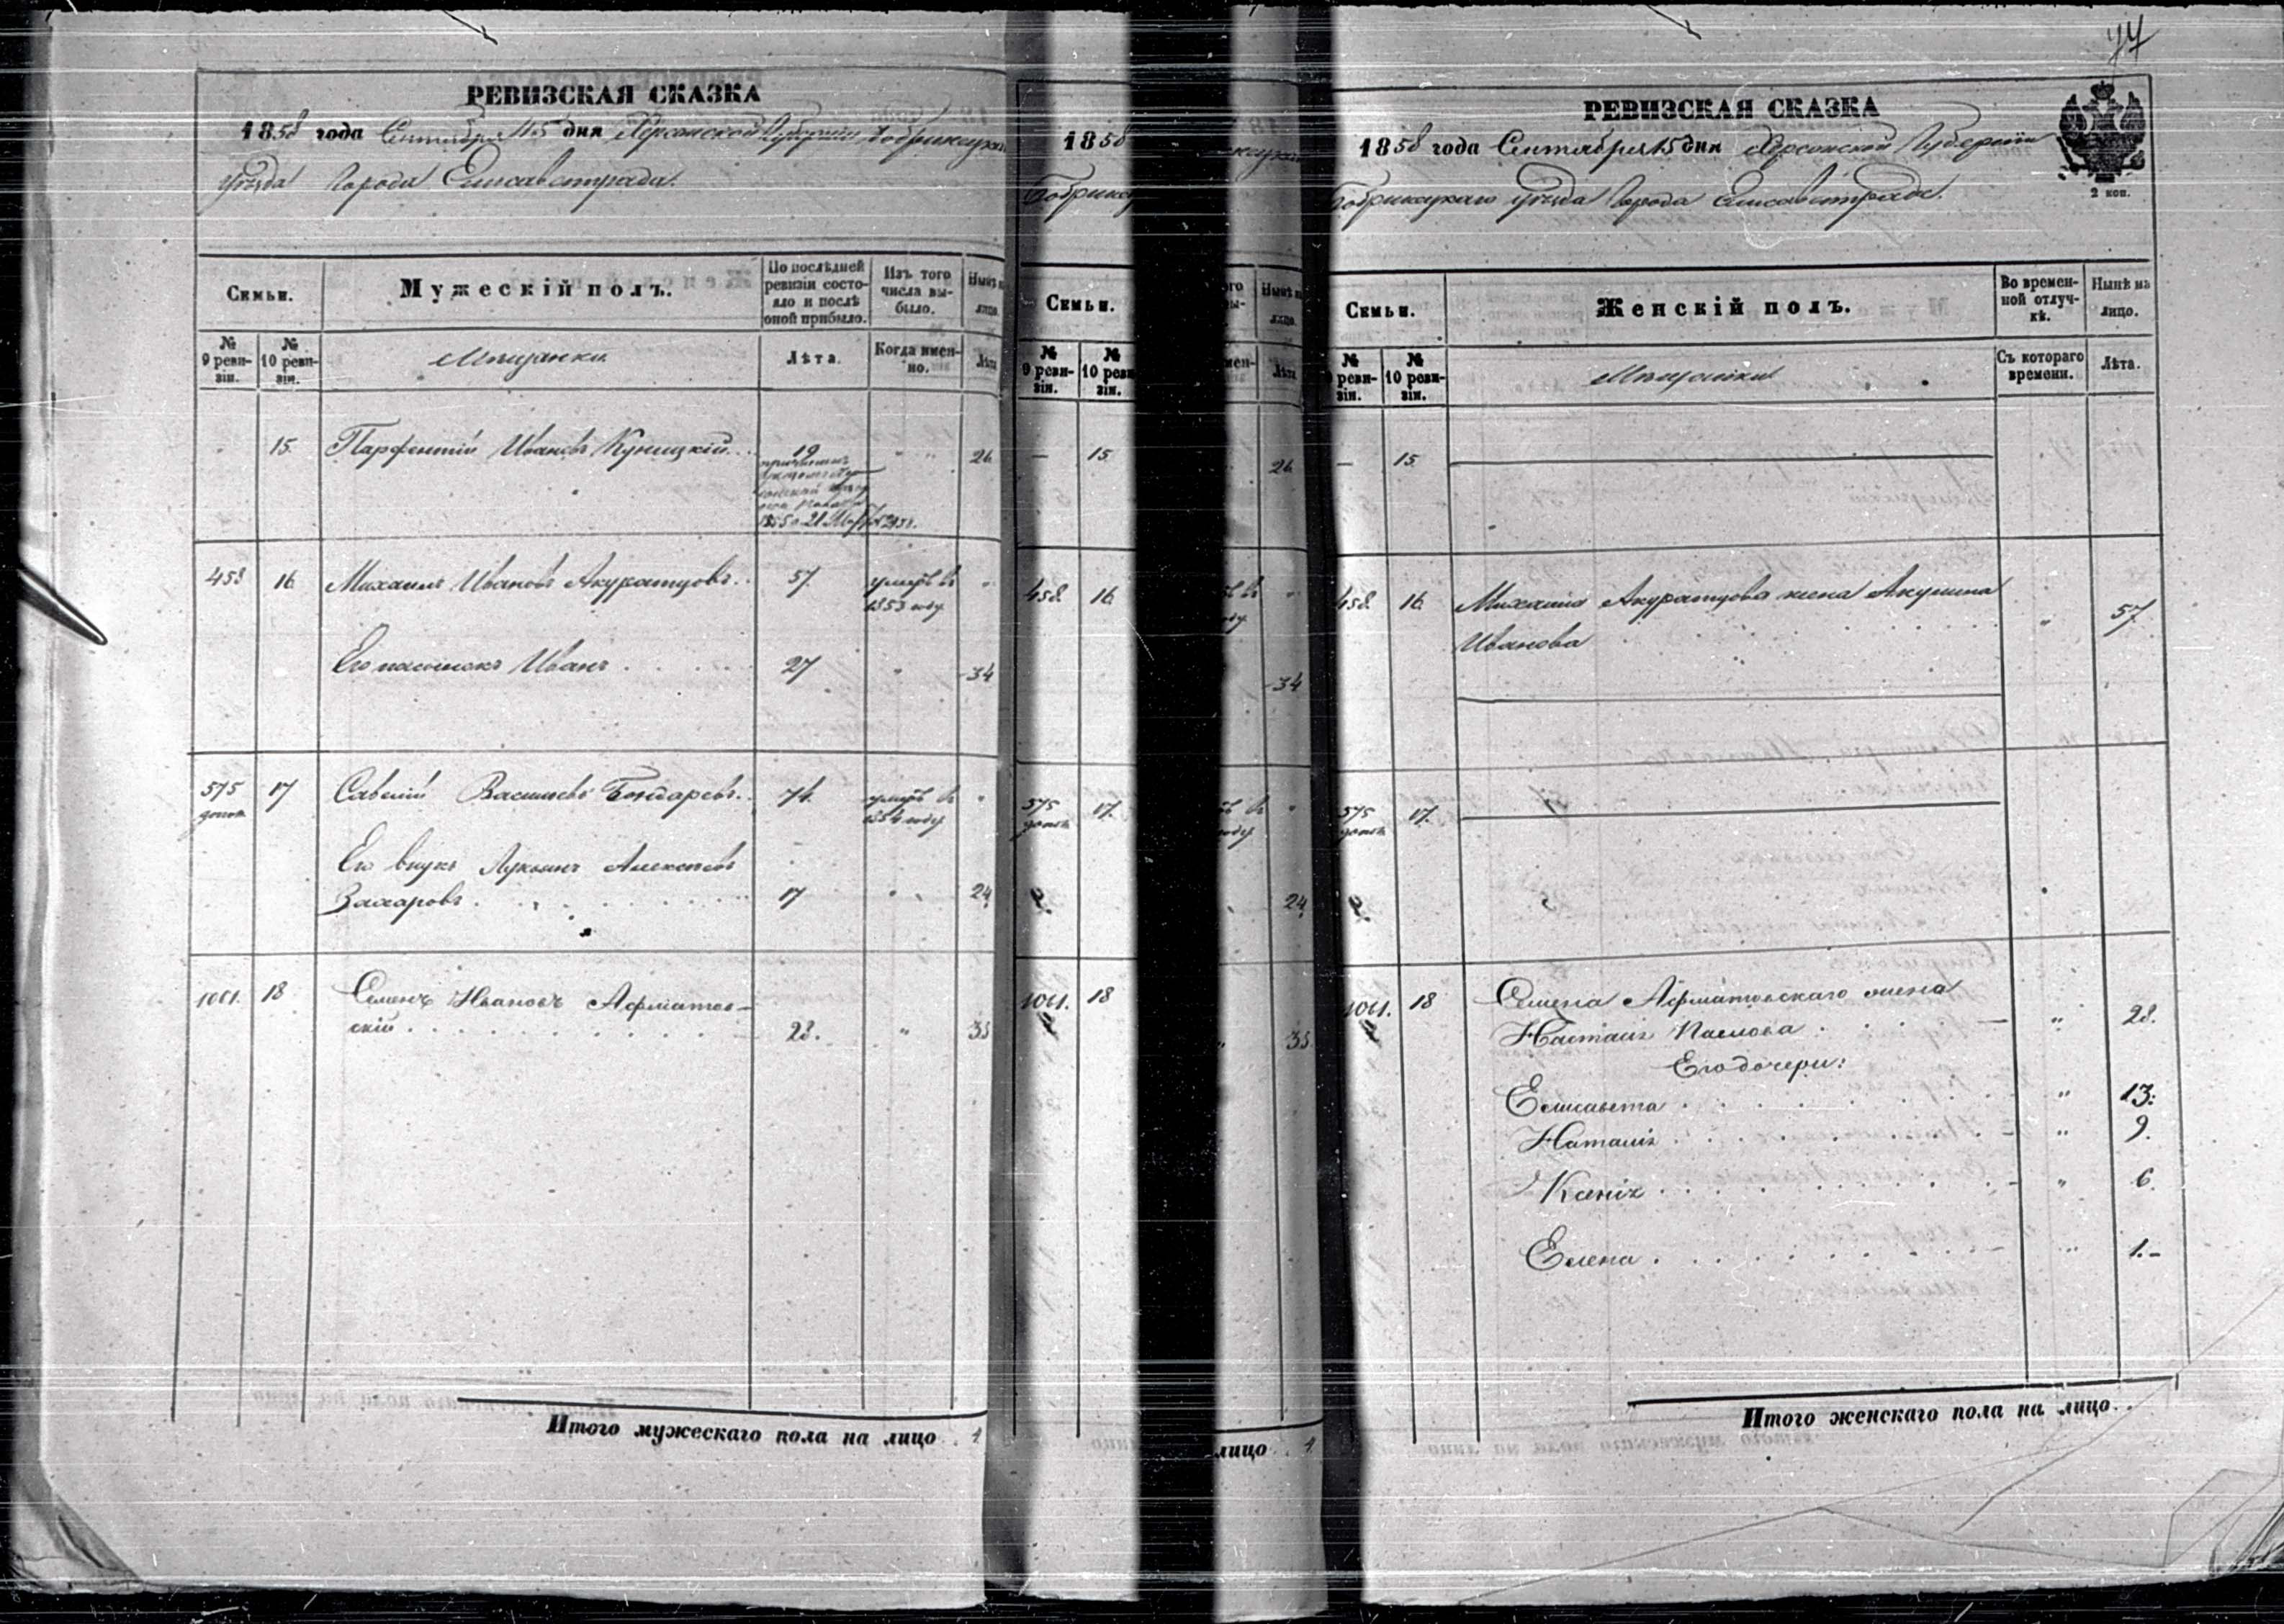 77
РЕВИЗСКАЯ СКАЗКА
1858 года Сентября 15 дня Херсонской Губернии Бобринецкаго
уѣзда Города Елисаветграда.
Семьи.
Мужескій полъ.
По послѣдней ревизіи состояло и послѣ оной прибыло.
Изъ того числа выбыло.
Нынѣ на лицо.
№ 9 ревизіи.
№ 10 ревизіи.
Мещанки
Лѣта.
Когда именно.
Лѣта
15. Парфентій Ивановъ Куницкій. 19 26
1855 г. 21 №
458 16. Михаилъ Ивановъ Акуратцовъ. 57. умеръ въ
1853 году
Его пасынокъ Иванъ 27 " 34
575 17 Савелій Васильевъ Бондаревъ. 74. умеръ въ
1854 году
Его внукъ Лукьянъ Алексѣевъ
Захаровъ 17 " 24
1061. 18 Семенъ Ивановъ Асфматов-
скій 28. " 35
Итого мужескаго пола на лицо 4
1858
Семьи.
№ 9 ревизіи.
№ 10 ревизіи.
15
26
458. 16.
34
575 17.
24
1061. 18
35
лицо 4
РЕВИЗСКАЯ СКАЗКА
1858 года Сентября 15 дня Херсонской Губерніи
Бобринецкаго уѣзда Города Елисаветграда.
2 коп.
Семьи.
Женскій полъ.
Во временной отлучкѣ.
Нынѣ на лицо.
№ 9 ревизіи.
№ 10 ревизіи.
Мещанки
Съ котораго времени.
Лѣта.
15.
458. 16. Михаила Акуратцова жена Акулина
Иванова " 57
575 17.
1061. 18 Семена Асфматовскаго жена
Наталія Павлова " 28.
Его дочери:
Елисавета " 13.
Наталія " 9.
Ксенія " 6.
Елена " 1.
Итого женскаго пола на лицо.